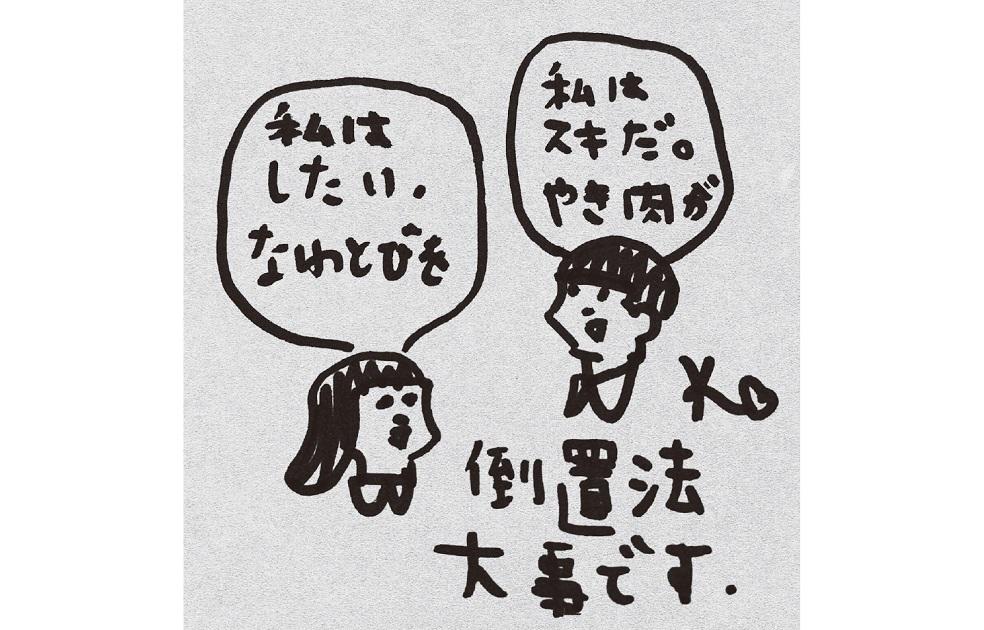 私は
したい.
なわとびを
私は
スキだ。
やき肉が
K
倒置法
大事です.